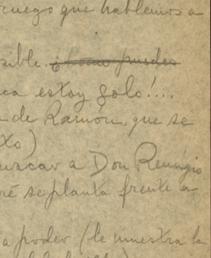 ruego que hablemos a
sible. ¿Cómo puedes
ca estoy solo!...
de Ramón, que se
xo)
uscar a Don Remigio
ré se planta frente a
a poder (le muestra la